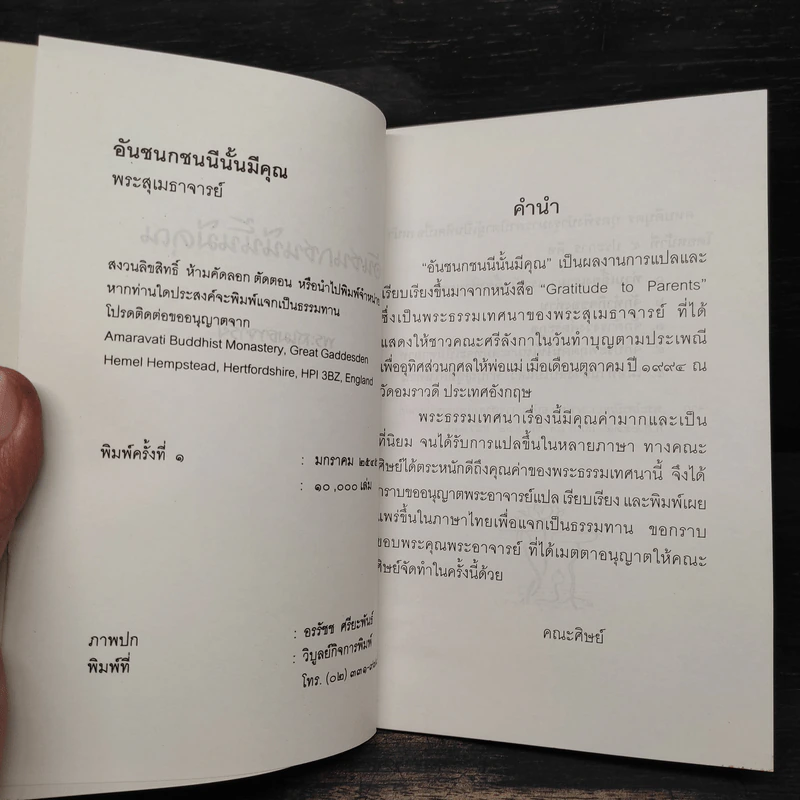 อันชนกชนนีนั้นมีคุณ
พระสุเมธาจารย์
สงวนลิขสิทธิ์ ห้ามคัดลอก ตัดตอน หรือนำไปพิมพ์จำหน่าย
หากท่านใดประสงค์จะพิมพ์แจกเป็นธรรมทาน
โปรดติดต่อขออนุญาตจาก
Amaravati Buddhist Monastery, Great Gaddesden
Hemel Hempstead, Hertfordshire, HPI 3BZ, England
พิมพ์ครั้งที่ ๑ : มกราคม
: ๑๐,๐๐๐ เล่ม
ภาพปก : อรรัชช ศรียะพันธ์
พิมพ์ที่ : วิบูลย์กิจการพิมพ์
โทร. (๐๒)
คำนำ
“อันชนกชนนีนั้นมีคุณ” เป็นผลงานการแปลและ
เรียบเรียงขึ้นมาจากหนังสือ “Gratitude to Parents”
ซึ่งเป็นพระธรรมเทศนาของพระสุเมธาจารย์ ที่ได้
แสดงให้ชาวคณะศรีลังกาในวันทำบุญตามประเพณี
เพื่ออุทิศส่วนกุศลให้พ่อแม่ เมื่อเดือนตุลาคม ปี ๑๙๙๔ ณ
วัดอมราวดี ประเทศอังกฤษ
พระธรรมเทศนาเรื่องนี้มีคุณค่ามากและเป็น
ที่นิยม จนได้รับการแปลขึ้นในหลายภาษา ทางคณะ
ศิษย์ได้ตระหนักดีถึงคุณค่าของพระธรรมเทศนานี้ จึงได้
กราบขออนุญาตพระอาจารย์แปล เรียบเรียง และพิมพ์เผย
แพร่ขึ้นในภาษาไทยเพื่อแจกเป็นธรรมทาน ขอกราบ
ขอบพระคุณพระอาจารย์ ที่ได้เมตตาอนุญาตให้คณะ
ศิษย์จัดทำในครั้งนี้ด้วย
คณะศิษย์